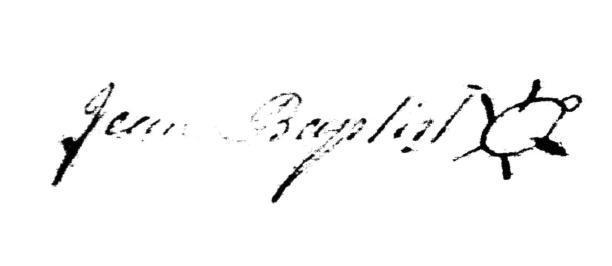 Jean Baptist